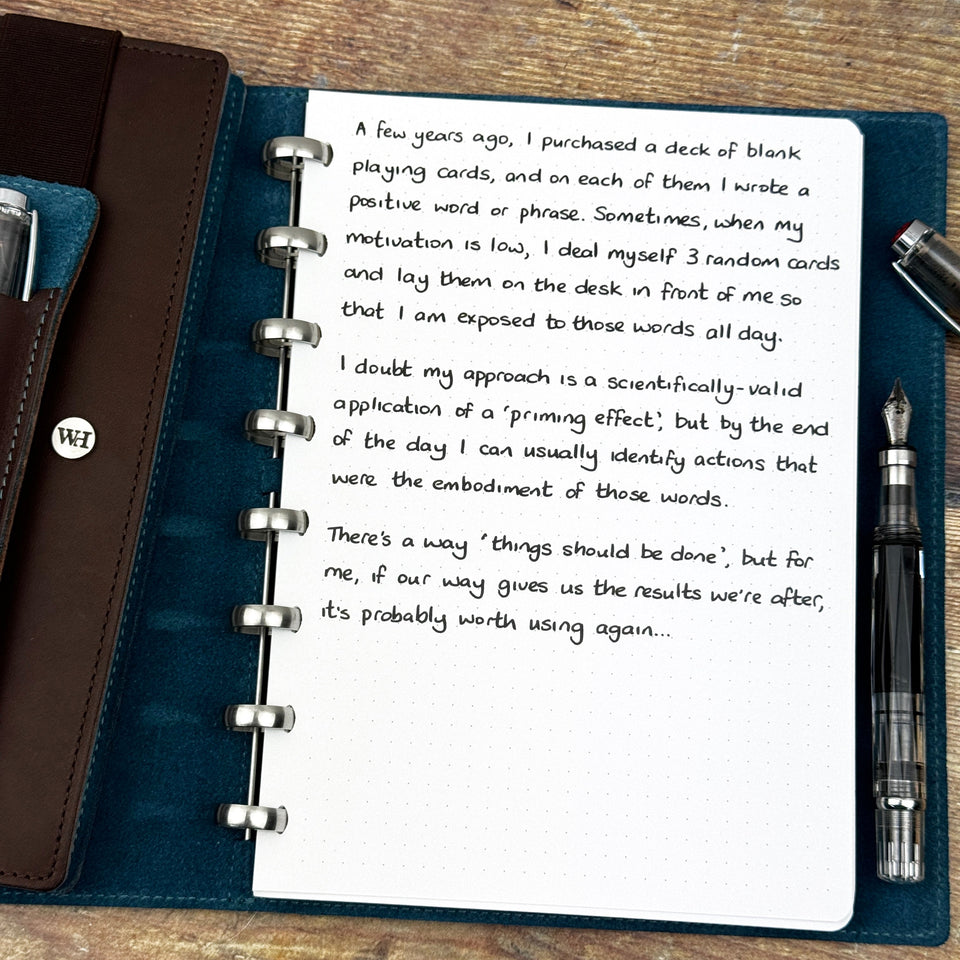 A few years ago, I purchased a deck of blank
playing cards, and on each of them I wrote a
positive word or phrase. Sometimes, when my
motivation is low, I deal myself 3 random cards
and lay them on the desk in front of me so
that I am exposed to those words all day.
I doubt my approach is a scientifically-valid
application of a 'priming effect', but by the end
of the day I can usually identify actions that
were the embodiment of those words.
There's a way 'things should be done', but for
me, if our way gives us the results we're after,
it's probably worth using again...
WH